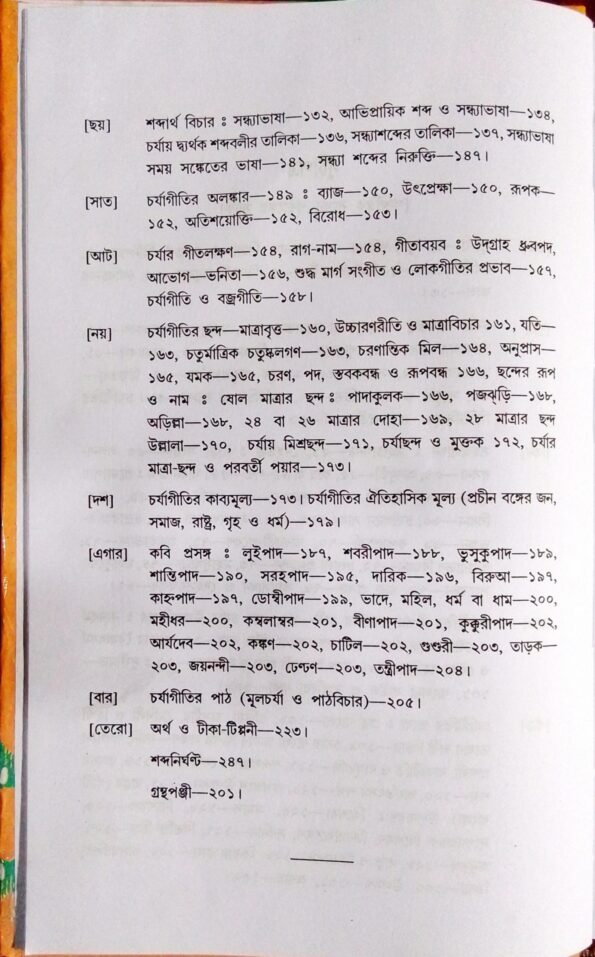 [ছয়] শব্দার্থ বিচার : সন্ধ্যাভাষা—১৩২, আভিপ্রায়িক শব্দ ও সন্ধ্যাভাষা—১৩৪,
চর্যায় দ্ব্যর্থক শব্দাবলীর তালিকা—১৩৬, সন্ধ্যাশব্দের তালিকা—১৩৭, সন্ধ্যাভাষা
সময় সঙ্কেতের ভাষা—১৪১, সন্ধ্যা শব্দের নিরুক্তি—১৪৭।
[সাত] চর্যাগীতির অলঙ্কার—১৪৯ : ব্যাজ—১৫০, উৎপ্রেক্ষা—১৫০, রূপক—
১৫২, অতিশয়োক্তি—১৫২, বিরোধ—১৫৩।
[আট] চর্যার গীতলক্ষণ—১৫৪, রাগ-নাম—১৫৪, গীতাবয়ব : উদ্‌গ্রাহ ধ্রুবপদ,
আভোগ—ভনিতা—১৫৬, শুদ্ধ মার্গ সংগীত ও লোকগীতির প্রভাব—১৫৭,
চর্যাগীতি ও বজ্রগীতি—১৫৮।
[নয়] চর্যাগীতির ছন্দ—মাত্রাবৃত্ত—১৬০, উচ্চারণরীতি ও মাত্রাবিচার ১৬১, যতি—
১৬৩, চতুর্মাত্রিক চতুষ্কলগণ—১৬৩, চরণান্তিক মিল—১৬৪, অনুপ্রাস—
১৬৫, যমক—১৬৫, চরণ, পদ, স্তবকবন্ধ ও রূপবন্ধ ১৬৬, ছন্দের রূপ
ও নাম : ষোল মাত্রার ছন্দ : পাদাকুলক—১৬৬, পজ্ঝড়ি—১৬৮,
অড়িল্লা—১৬৮, ২৪ বা ২৬ মাত্রার দোহা—১৬৯, ২৮ মাত্রার ছন্দ
উল্লালা—১৭০, চর্যায় মিশ্রছন্দ—১৭১, চর্যাছন্দ ও মুক্তক ১৭২, চর্যার
মাত্রা-ছন্দ ও পরবর্তী পয়ার—১৭৩।
[দশ] চর্যাগীতির কাব্যমূল্য—১৭৩। চর্যাগীতির ঐতিহাসিক মূল্য (প্রচীন বঙ্গের জন,
সমাজ, রাষ্ট্র, গৃহ ও ধর্ম)—১৭৯।
[এগার] কবি প্রসঙ্গ : লুইপাদ—১৮৭, শবরীপাদ—১৮৮, ভুসুকুপাদ—১৮৯,
শান্তিপাদ—১৯০, সরহপাদ—১৯৫, দারিক—১৯৬, বিরুআ—১৯৭,
কাহ্নপাদ—১৯৭, ডোম্বীপাদ—১৯৯, ভাদে, মহিল, ধর্ম বা ধাম—২০০,
মহীধর—২০০, কম্বলাম্বর—২০১, বীণাপাদ—২০১, কুক্কুরীপাদ—২০২,
আর্যদেব—২০২, কঙ্কণ—২০২, চাটিল—২০২, গুণ্ডরী—২০৩, তাড়ক—
২০৩, জয়নন্দী—২০৩, ঢেণ্ঢণ—২০৩, তন্ত্রীপাদ—২০৪।
[বার] চর্যাগীতির পাঠ (মূলচর্যা ও পাঠবিচার)—২০৫।
[তেরো] অর্থ ও টীকা-টিপ্পনী—২২৩।
শব্দনির্ঘণ্ট—২৪৭।
গ্রন্থপঞ্জী—২০১।